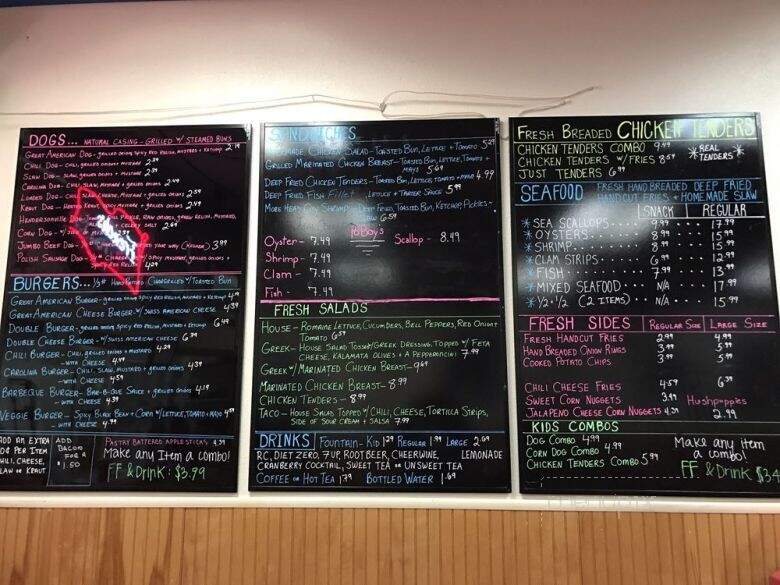 DOGS... NATURAL CASING - GRILLED W/ STEAMED BUNS
GREAT AMERICAN DOG - GRILLED ONION SPICY RED RELISH, MUSTARD + KETCHUP
CHILI DOG - CHILI, GRILLED ONIONS + MUSTARD 2.59
SLAW DOG - SLAW, GRILLED ONIONS + MUSTARD
CAROLINA DOG - CHILI, SLAW, MUSTARD, GRILLED ONIONS
LOADED DOG - CHILI,
KRAUT DOG -
HENDERSONVILLE PICKLE, RAW ONIONS, GREEN RELISH, MUSTARD,
CELERY SALT 2.69
CORN DOG -
JUMBO BEEF DOG YOUR WAY (CHARRED) 3.99
POLISH SAUSAGE DOG - SPICY MUSTARD, GRILLED ONIONS +
SPICY RED RELISH 4.29
BURGERS... 1/3# HAND PATTIED CHARGRILLED W/ TOASTED BUN
GREAT AMERICAN BURGER - GRILLED ONIONS SPICY RED RELISH, MUSTARD + KETCHUP
GREAT AMERICAN CHEESE BURGER - W/ SWISS AMERICAN CHEESE 4.59
DOUBLE BURGER - GRILLED ONIONS, SPICY RED RELISH, MUSTARD + KETCHUP
DOUBLE CHEESE BURGER - W/ SWISS AMERICAN CHEESE
CHILI BURGER - CHILI, GRILLED ONIONS + MUSTARD 4.29
- WITH CHEESE 4.49
CAROLINA BURGER - CHILI, SLAW, MUSTARD, + GRILLED ONIONS 4.39
- WITH CHEESE 4.59
BARBEQUE BURGER - BAR-B-QUE SAUCE + GRILLED ONIONS 4.19
- WITH CHEESE 4.39
VEGGIE BURGER - SPICY BLACK BEAN + CORN W/ LETTUCE, TOMATO + MAYO
- WITH CHEESE
ADD AN EXTRA
PER ITEM
CHILI, CHEESE,
SLAW OR KRAUT
ADD
BACON
FOR A
$1.50
PASTRY BATTERED APPLE STICKS
Make any Item a combo!
FF & Drink: $3.79
SANDWICHES
CHICKEN SALAD - TOASTED BUN, LETTUCE + TOMATO
GRILLED MARINATED CHICKEN BREAST - TOASTED BUN, LETTUCE, TOMATO +
MAYO 5.69
DEEP FRIED CHICKEN TENDERS - TOASTED BUN, LETTUCE, TOMATO + MAYO 4.99
DEEP FRIED FISH FILLET , LETTUCE + TARTER SAUCE 5.99
MORE HEAD CITY SHRIMP - DEEP FRIED, TOASTED BUN, KETCHUP, PICKLES +
SLAW 6.59
Po'Boys
Oyster - 7.49
Scallop - 8.49
Shrimp - 7.49
Clam - 7.49
Fish - 7.49
FRESH SALADS
HOUSE - ROMAINE LETTUCE, CUCUMBERS, BELL PEPPERS, RED ONION +
TOMATO
GREEK - HOUSE SALAD TOSSED W/ GREEK DRESSING, TOPPED W/ FETA
CHEESE, KALAMATA OLIVES + A PEPPERONCINI 7.99
GREEK W/ MARINATED CHICKEN BREAST -
MARINATED CHICKEN BREAST - 8.99
CHICKEN TENDERS - 8.99
TACO - HOUSE SALAD TOPPED W/ CHILI, CHEESE, TORTILLA STRIPS,
SIDE OF SOUR CREAM + SALSA 7.99
DRINKS FOUNTAIN - KID 1.29 REGULAR 1.99 LARGE 2.69
RC, DIET ZERO, 7UP, ROOTBEER, CHEERWINE, LEMONADE
CRANBERRY COCKTAIL, SWEET TEA OR UNSWEET TEA
COFFEE OR HOT TEA 1.79 BOTTLED WATER 1.69
FRESH BREADED CHICKEN TENDERS
CHICKEN TENDERS COMBO 9.49
CHICKEN TENDERS W/ FRIES 8.59
JUST TENDERS 6.99
*REAL TENDERS*
SEAFOOD FRESH HAND BREADED DEEP FRIED
HANDCUT FRIES + HOMEMADE SLAW
SNACK REGULAR
*SEA SCALLOPS 9.99 17.99
*OYSTERS 8.99 15.99
*SHRIMP 8.99 15.99
*CLAM STRIPS 6.99 12.99
*FISH 7.99 13.99
*MIXED SEAFOOD N/A 17.99
*1/2 + 1/2 (2 ITEMS) N/A 15.99
FRESH SIDES REGULAR SIZE LARGE SIZE
FRESH HANDCUT FRIES 2.99 4.99
HAND BREADED ONION RINGS 3.99 5.99
COOKED POTATO CHIPS
CHILI CHEESE FRIES 4.59 6.39
SWEET CORN NUGGETS Hushpuppies
JALAPENO CHEESE CORN NUGGETS 2.99
KIDS COMBOS
DOG COMBO 4.99
CORN DOG COMBO 4.99
CHICKEN TENDERS COMBO 5.99
Make any item
a combo!
FF & Drink